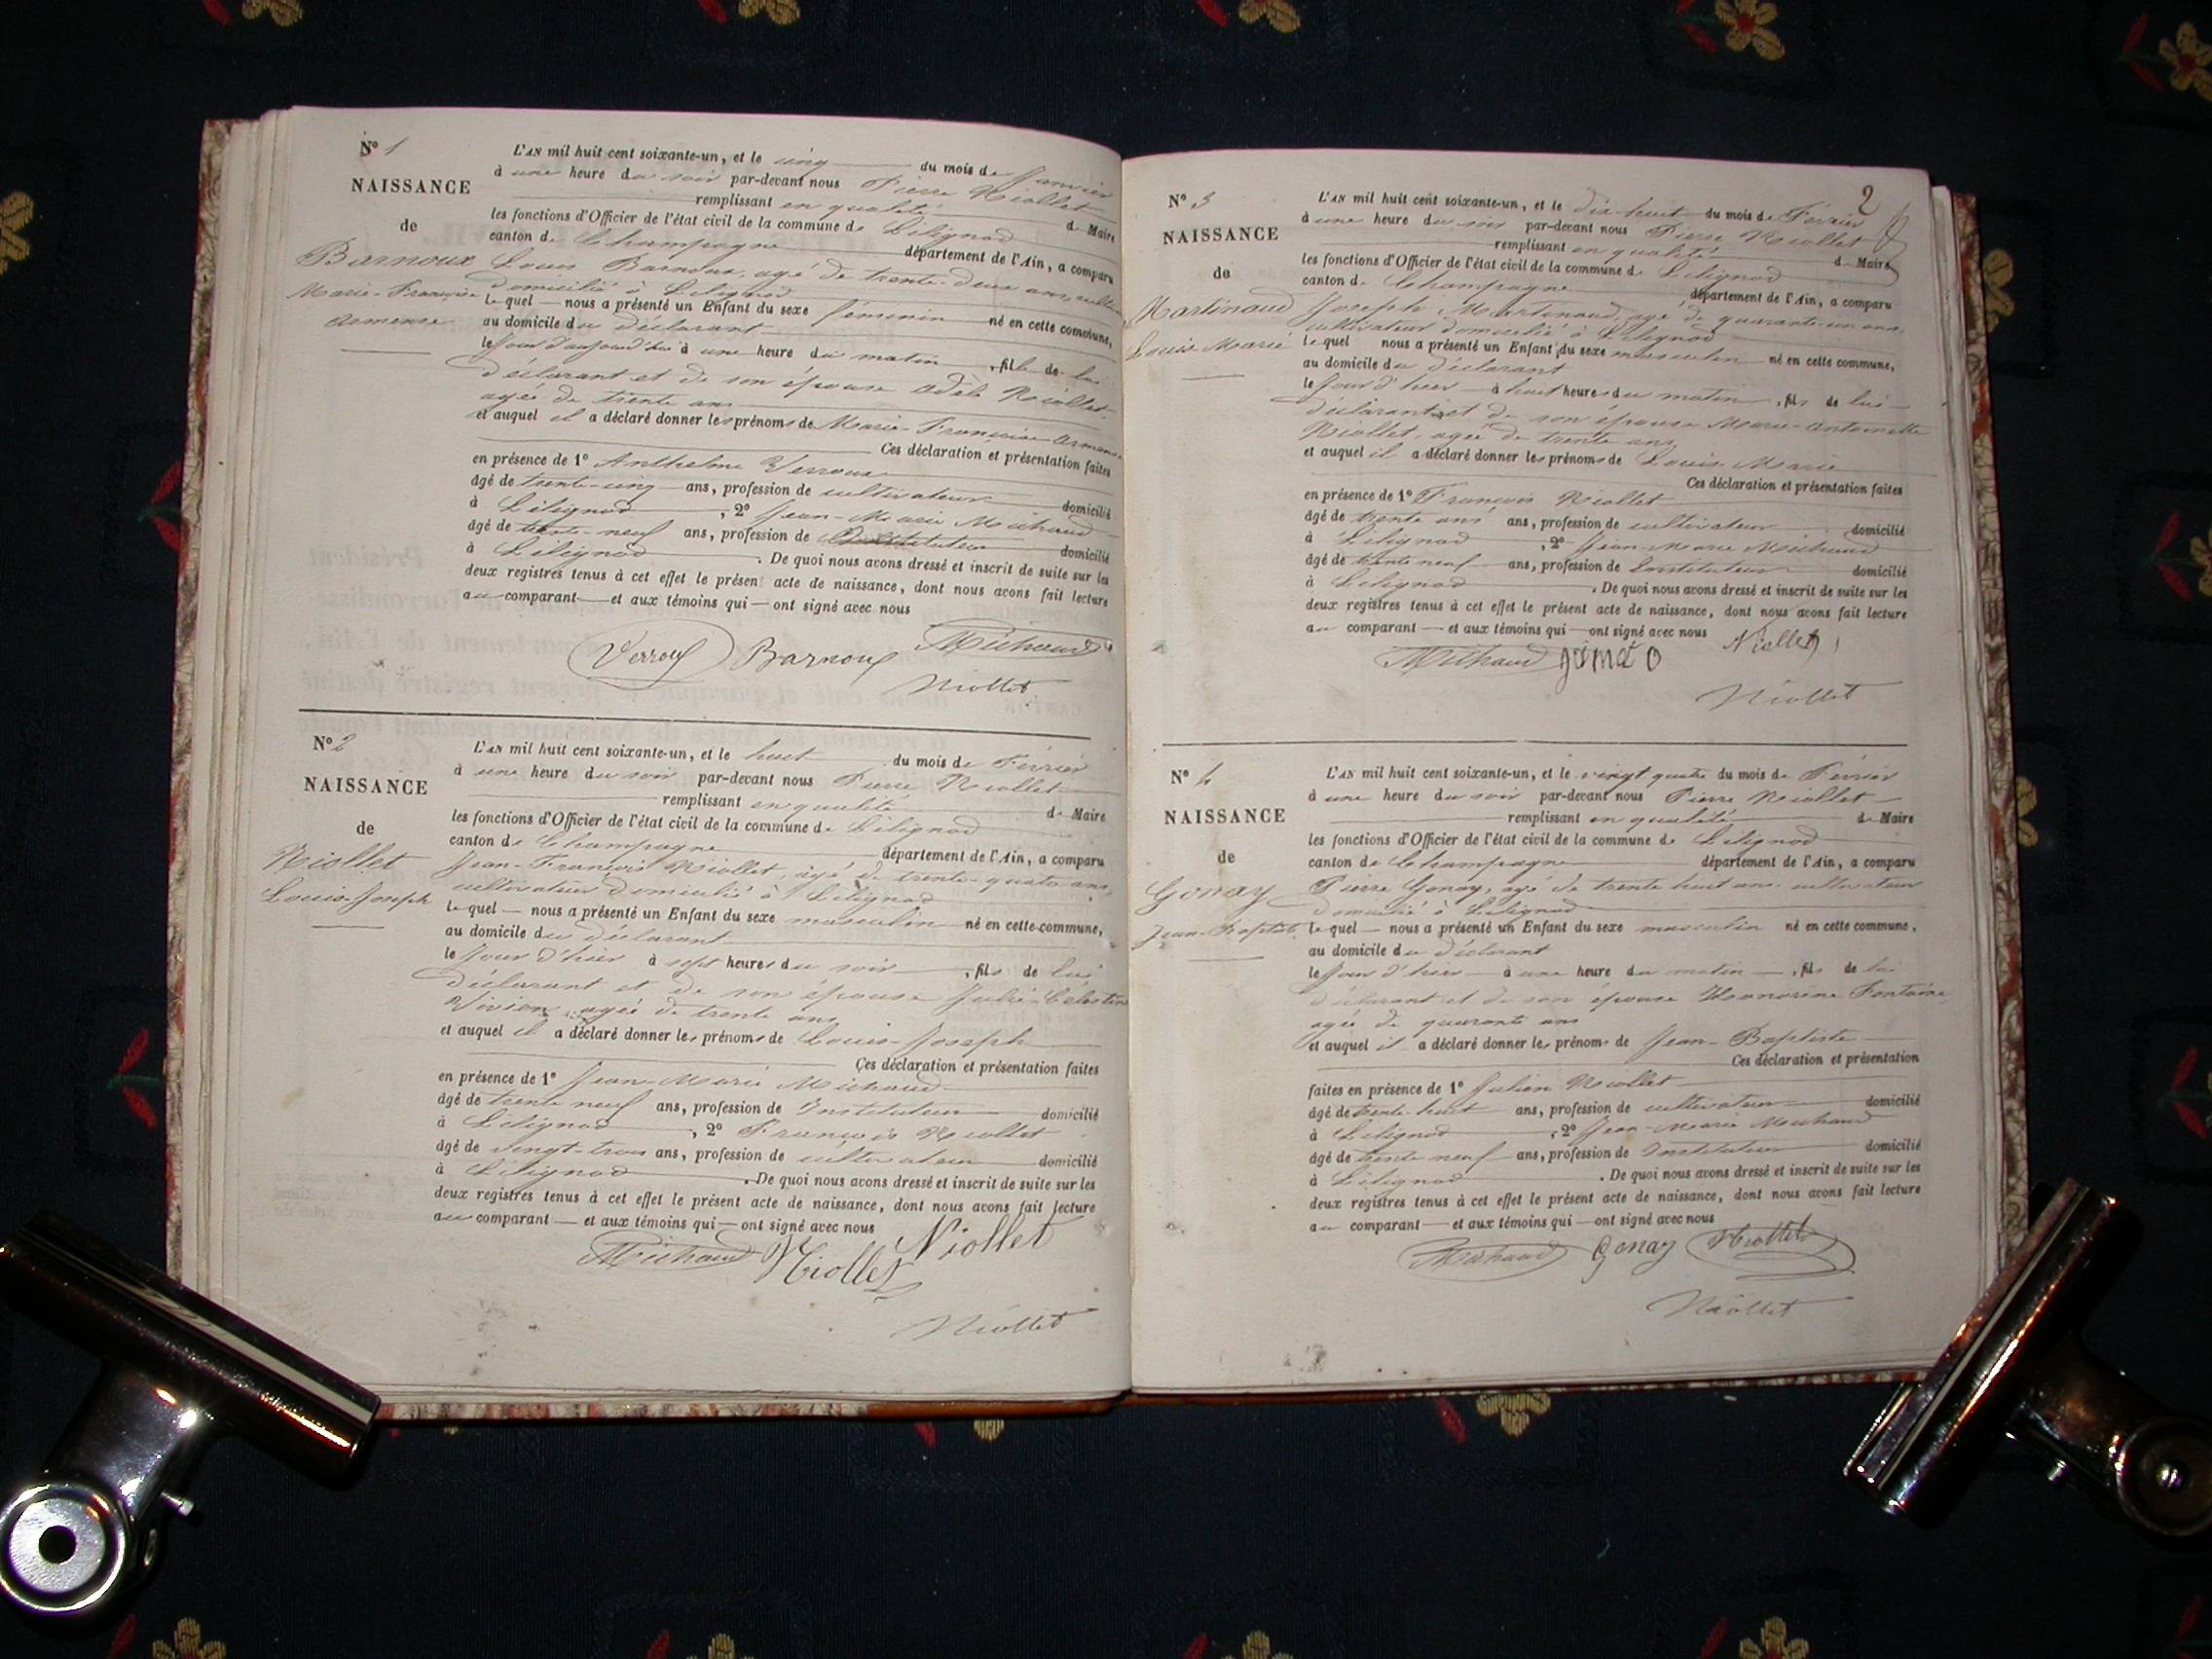 N° 1
NAISSANCE
de
Barnoux
Marie-Françoise
Armense
L'AN mil huit cent soixante-un, et le cinq du mois de Janvier
à une heure du soir par-devant nous Pierre Niollet
remplissant en qualité de Maire
les fonctions d'Officier de l'état civil de la commune de Lilignod
canton de Champagne département de l'Ain, a comparu
Louis Barnoux, agé de trente-deux ans, cultiv
domicilié à Lilignod
lequel nous a présenté un Enfant du sexe féminin né en cette commune,
au domicile du déclarant
le jour d'aujourd'hui à une heure du matin, fille de lui
déclarant et de son épouse Adèle Niollet
agée de trente ans
et auquel il a déclaré donner les prénoms de Marie-Françoise-Armense
Ces déclaration et présentation faites
en présence de 1° Anthelme Verroux
âgé de trente-cinq ans, profession de cultivateur domicilié
à Lilignod, 2° Jean-Marie Michaud
âgé de trente-neuf ans, profession de Instituteur domicilié
à Lilignod. De quoi nous avons dressé et inscrit de suite sur les
deux registres tenus à cet effet le présent acte de naissance, dont nous avons fait lecture
au comparant et aux témoins qui ont signé avec nous
Verroux Barnoux Michaud
Niollet
N° 2
NAISSANCE
de
Niollet
Louis-Joseph
L'AN mil huit cent soixante-un, et le huit du mois de Février
à une heure du soir par-devant nous Pierre Niollet
remplissant en qualité de Maire
les fonctions d'Officier de l'état civil de la commune de Lilignod
canton de Champagne département de l'Ain, a comparu
Jean-François Niollet, agé de trente-quatre ans,
cultivateur domicilié à Lilignod
lequel nous a présenté un Enfant du sexe masculin né en cette commune,
au domicile du déclarant
le jour d'hier à sept heures du soir, fils de lui
déclarant et de son épouse Julie-Célestine
agée de trente ans
et auquel il a déclaré donner les prénoms de Louis-Joseph
Ces déclaration et présentation faites
en présence de 1° Jean-Marie Michaud
âgé de trente neuf ans, profession de Instituteur domicilié
à Lilignod, 2° François Niollet
âgé de vingt-trois ans, profession de cultivateur domicilié
à Lilignod. De quoi nous avons dressé et inscrit de suite sur les
deux registres tenus à cet effet le présent acte de naissance, dont nous avons fait lecture
au comparant et aux témoins qui ont signé avec nous
Michaud Niollet Niollet
Niollet
2
N° 3
NAISSANCE
de
Martinaud
Louis Marie
L'AN mil huit cent soixante-un, et le dix-huit du mois de Février
à une heure du soir par-devant nous Pierre Niollet
remplissant en qualité de Maire
les fonctions d'Officier de l'état civil de la commune de Lilignod
canton de Champagne département de l'Ain, a comparu
Joseph Martinaud, agé de quarante-un ans,
cultivateur domicilié à Lilignod
lequel nous a présenté un Enfant du sexe masculin né en cette commune,
au domicile du déclarant
le jour d'hier à huit heures du matin, fils de lui
déclarant et de son épouse Marie-Antoinette
Niollet, agée de trente ans
et auquel il a déclaré donner les prénoms de Louis-Marie
Ces déclaration et présentation faites
en présence de 1° François Niollet
âgé de trente ans ans, profession de cultivateur domicilié
à Lilignod, 2° Jean-Marie Michaud
âgé de trente neuf ans, profession de Instituteur domicilié
à Lilignod. De quoi nous avons dressé et inscrit de suite sur les
deux registres tenus à cet effet le présent acte de naissance, dont nous avons fait lecture
au comparant et aux témoins qui ont signé avec nous Niollet
Michaud
Niollet
N° 4
NAISSANCE
de
Gonay
Jean-Baptiste
L'AN mil huit cent soixante-un, et le vingt quatre du mois de Février
à une heure du soir par-devant nous Pierre Niollet
remplissant en qualité de Maire
les fonctions d'Officier de l'état civil de la commune de Lilignod
canton de Champagne département de l'Ain, a comparu
Pierre Gonay, agé de trente huit ans cultivateur
domicilié à Lilignod
lequel nous a présenté un Enfant du sexe masculin né en cette commune,
au domicile du déclarant
le jour d'hier à une heure du matin, fils de lui
déclarant et de son épouse Honorine Fontaine
agée de quarante ans
et auquel il a déclaré donner les prénoms de Jean-Baptiste
Ces déclaration et présentation
faites en présence de 1° Julien Niollet
âgé de trente-huit ans, profession de cultivateur domicilié
à Lilignod, 2° Jean-Marie Michaud
âgé de trente neuf ans, profession de Instituteur domicilié
à Lilignod. De quoi nous avons dressé et inscrit de suite sur les
deux registres tenus à cet effet le présent acte de naissance, dont nous avons fait lecture
au comparant et aux témoins qui ont signé avec nous
Michaud Gonay Niollet
Niollet